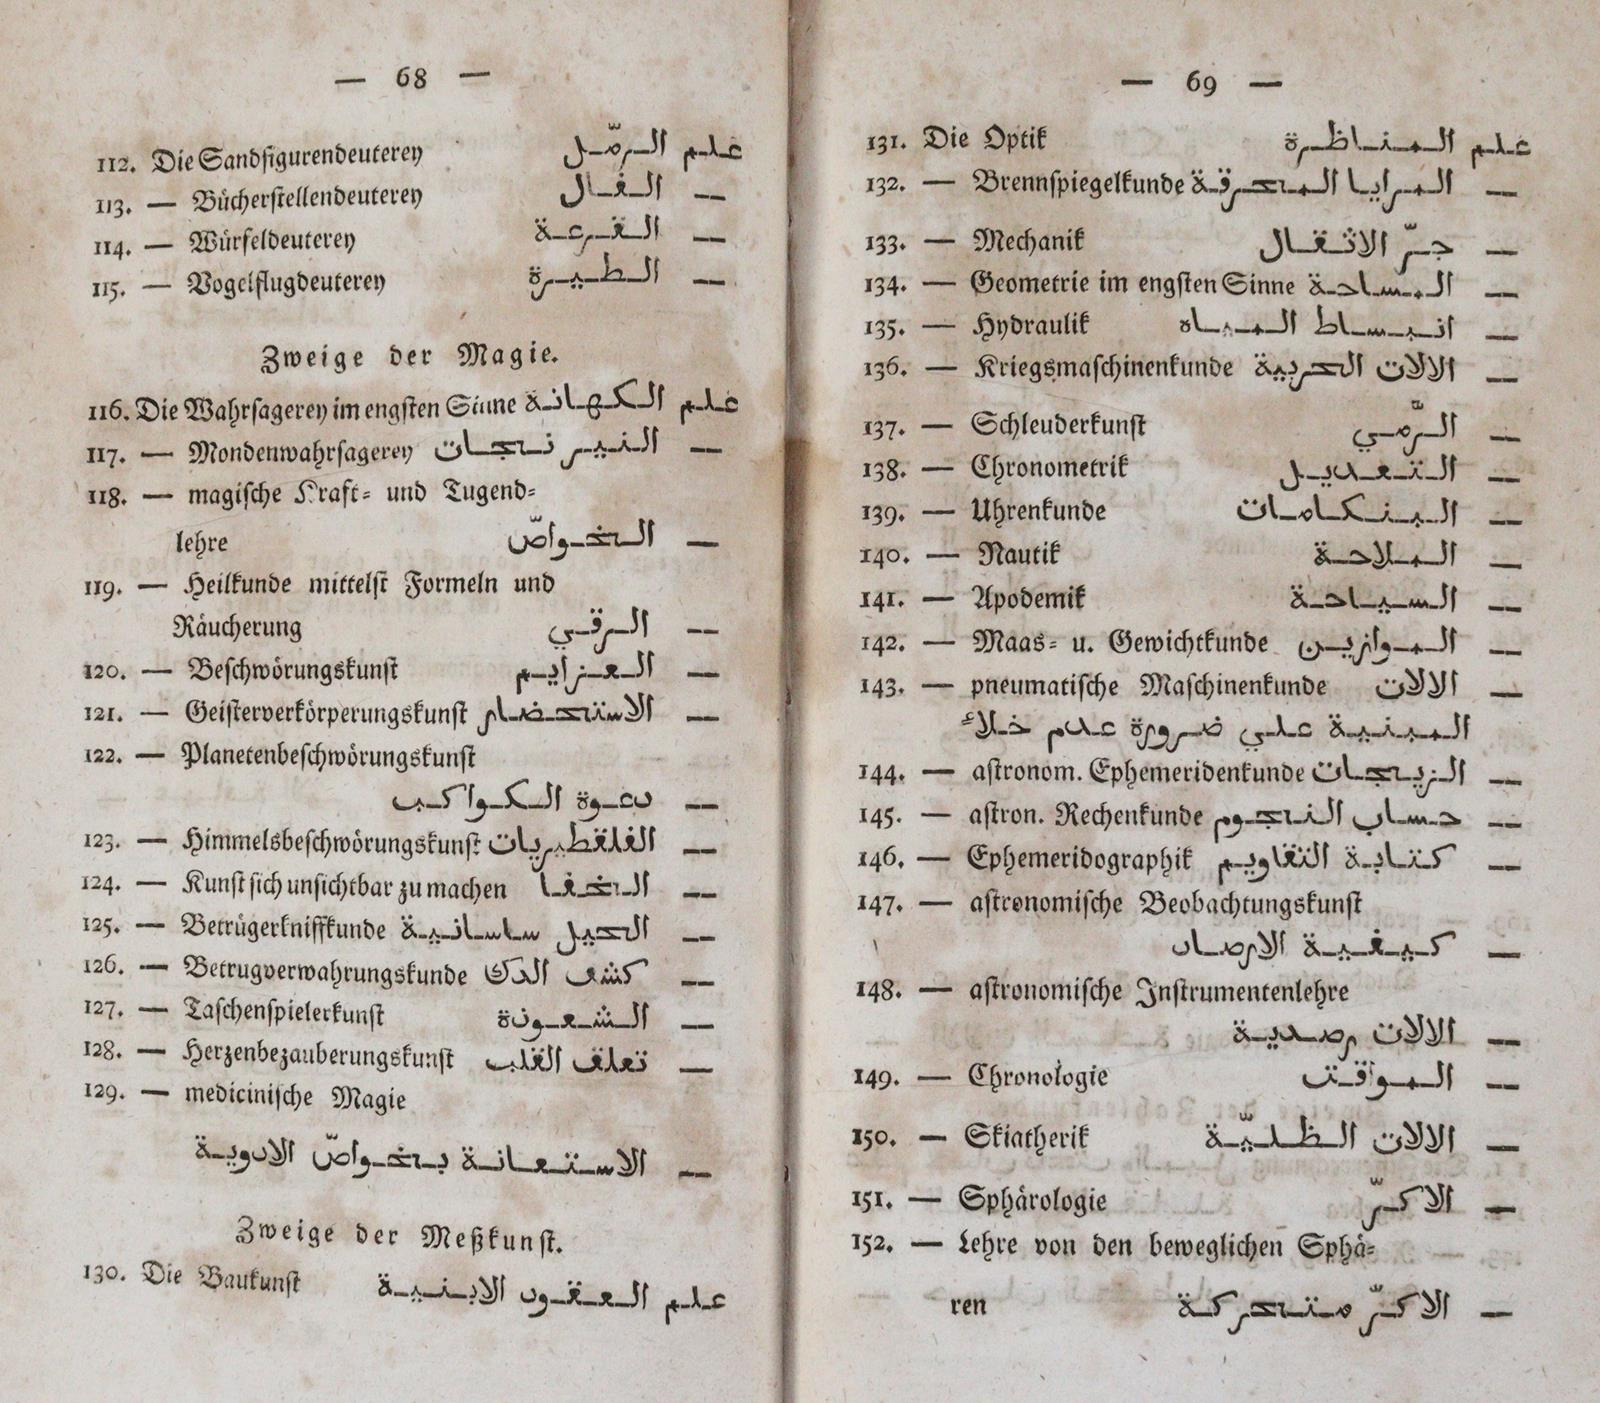 — 68 —
112. Die Sandfigurendeuterey علم الرمّل
113. — Bücherstellendeuterey الفال —
114. — Würfeldeuterey القرعة —
115. — Vogelflugdeuterey الطيرة —
Zweige der Magie.
116. Die Wahrsagerey im engsten Sinne علم الكهانة
117. — Mondenwahrsagerey النير نجات —
118. — magische Kraft- und Tugend-
lehre الخواصّ —
119. — Heilkunde mittelst Formeln und
Räucherung الرقي —
120. — Beschwörungskunst العزايم —
121. — Geisterverkörperungskunst الاستحضار —
122. — Planetenbeschwörungskunst
دعوة الكواكب —
123. — Himmelsbeschwörungskunst الفلقطيريات —
124. — Kunst sich unsichtbar zu machen الخفا —
125. — Betrügerkniffkunde الحيل ساسانية —
126. — Betrugverwahrungskunde كشف الدك —
127. — Taschenspielerkunst الشعوذة —
128. — Herzenbezauberungskunst تعلق القلب —
129. — medicinische Magie
الاستعانة بخواصّ الادوية —
Zweige der Meßkunst.
130. Die Baukunst علم العقود الابنية
— 69 —
131. Die Optik علم المناظرة
132. — Brennspiegelkunde المرايا المحرقة —
133. — Mechanik جرّ الاثقال —
134. — Geometrie im engsten Sinne المساحة —
135. — Hydraulik انبساط المياه —
136. — Kriegsmaschinenkunde الالات الحربية —
137. — Schleuderkunst الرّمي —
138. — Chronometrik التعديل —
139. — Uhrenkunde البنكامات —
140. — Nautik الملاحة —
141. — Apodemik السياحة —
142. — Maas- u. Gewichtkunde الموازين —
143. — pneumatische Maschinenkunde الالات —
المبنية علي ضرورة عدم خلاء
144. — astronom. Ephemeridenkunde الزيجات —
145. — astron. Rechenkunde حساب النجوم —
146. — Ephemeridographik كتابة التقاويم —
147. — astronomische Beobachtungskunst
كيفية الارصاد —
148. — astronomische Instrumentenlehre
الالات رصدية —
149. — Chronologie المواقت —
150. — Skiatherik الالات الظليّة —
151. — Sphärologie الاكرّ —
152. — Lehre von den beweglichen Sphä-
ren الاكرّ متحركة —